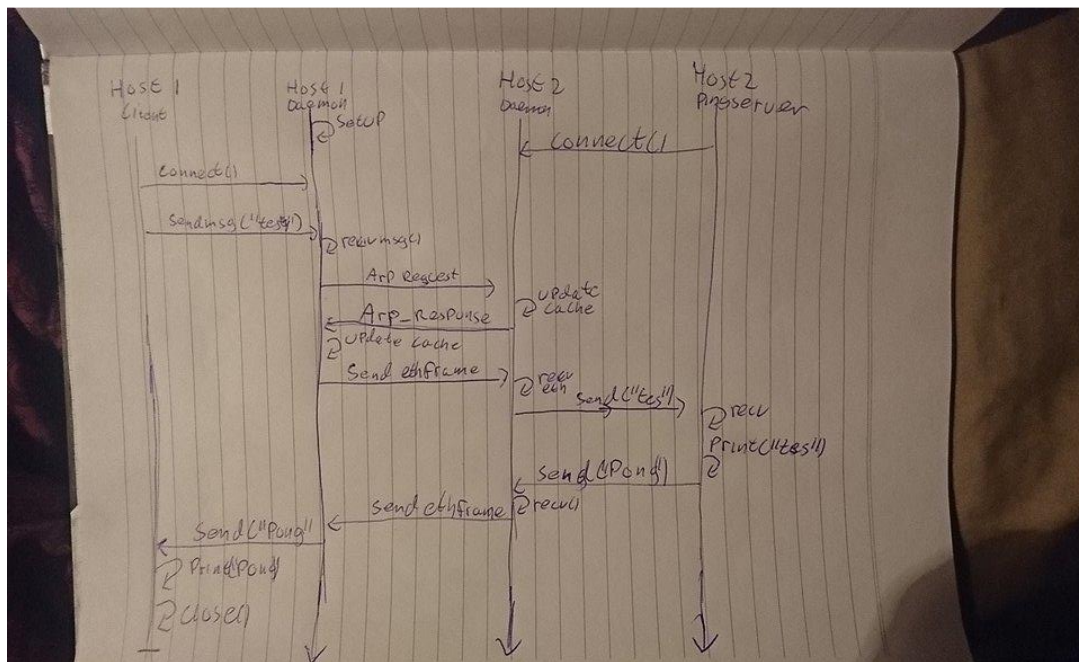 Host 1
Client
Host 1
Daemon
Host 2
Daemon
Host 2
Pingserver
Setup
connect()
connect()
Sendmsg("test")
recvmsg()
Arp Reqest
update
cache
Arp_Response
update cache
Send ethframe
recv
Send("tes")
recv
Print("tes")
send("Pong")
recv()
send ethframe
Send("Pong"
Print(Pong)
close()